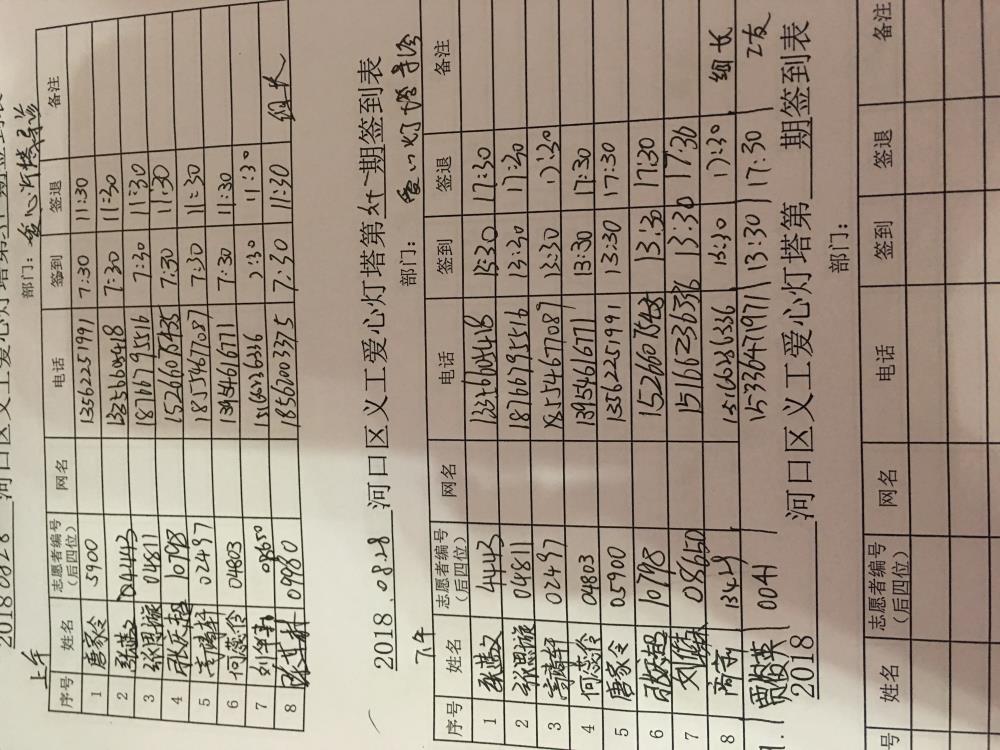 20180828 河口区义工爱心灯塔第 期签到表
上午 部门:
序号 姓名 志愿者编号（后四位） 网名 电话 签到 签退 备注
1 唐家令 5900 13562251991 7:30 11:30
2 04443 13356605418 7:30 11:30
3 张思漩 04811 18766795516 7:30 11:30
4 10798 15266075485 7:30 11:30
5 02497 18554677087 7:30 11:30
6 何蕊伶 04803 13954616771 7:30 11:30
7 08650 15166236336 7:30 11:30
8 0980 18562003375 7:30 11:30 组长
2018.0828 河口区义工爱心灯塔第 期签到表
下午 部门: 爱心灯塔
序号 姓名 志愿者编号（后四位） 网名 电话 签到 签退 备注
1 4443 13356605418 13:30 17:30
2 张思漩 04811 18766795516 13:30 17:30
3 02497 18554677087 13:30 17:30
4 何蕊伶 04803 13954616771 13:30 17:30
5 唐家令 05900 13562251991 13:30 17:30
6 10798 15266075485 13:30 17:30
7 08650 15166236336 13:30 17:30
8 13429 13:30 17:30 组长
贾俊英 0041 15330471971 13:30 17:30
2018 河口区义工爱心灯塔第 期签到表
部门:
号 姓名 志愿者编号（后四位） 网名 电话 签到 签退 备注